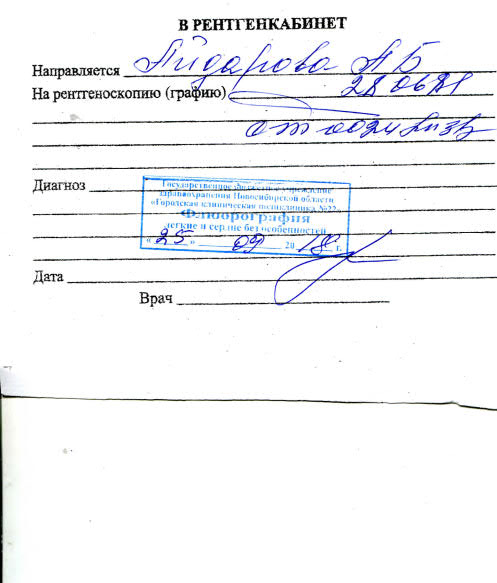 В РЕНТГЕНКАБИНЕТ
Направляется
На рентгеноскопию (графию)
Диагноз
Государственное бюджетное учреждение
здравоохранения Новосибирской области
«Городская клиническая поликлиника №22»
Флюорография
легкие и сердце без особенностей
« 25 » 09 20 18 г.
Дата
Врач